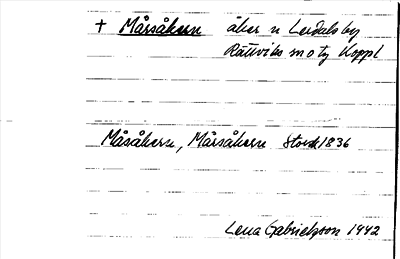 + Mårsåkern åker n Lerdalsby
Rättviks sn o tg Koppl
Måsåkern, Mårsåkern Storsk 1836
Lena Gabrielsson 1942